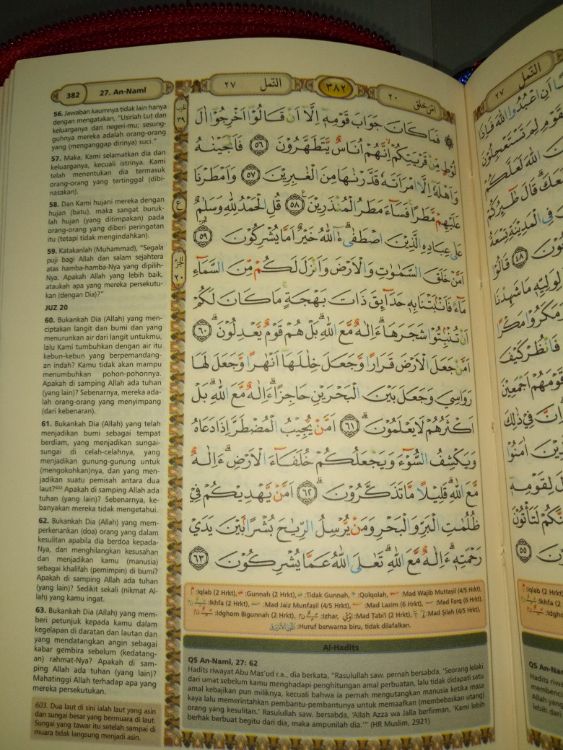 382
27. An-Naml
٢٧
النمل
٣٨٢
٢٠
امن خلق
56. Jawaban kaumnya tidak lain hanya
dengan mengatakan, "Usirlah Lut dan
keluarganya dari negerimu; sesung-
guhnya mereka adalah orang-orang
yang (menganggap dirinya) suci."
57. Maka, Kami selamatkan dia dan
keluarganya, kecuali istrinya. Kami
telah menentukan dia termasuk
orang-orang yang tertinggal (dibi-
nasakan).
58. Dan Kami hujani mereka dengan
hujan (batu), maka sangat buruk-
lah hujan (yang ditimpakan) pada
orang-orang yang diberi peringatan
itu (tetapi tidak mengindahkan).
59. Katakanlah (Muhammad), "Segala
puji bagi Allah dan salam sejahtera
atas hamba-hamba-Nya yang dipilih-
Nya. Apakah Allah yang lebih baik,
ataukah apa yang mereka persekutu-
kan (dengan Dia)?"
JUZ 20
60. Bukankah Dia (Allah) yang men-
ciptakan langit dan bumi dan yang
menurunkan air dari langit untukmu,
lalu Kami tumbuhkan dengan air itu
kebun-kebun yang berpemandang-
an indah? Kamu tidak akan mampu
menumbuhkan pohon-pohonnya.
Apakah di samping Allah ada tuhan
(yang lain)? Sebenarnya, mereka ada-
lah orang-orang yang menyimpang
(dari kebenaran).
61. Bukankah Dia (Allah) yang telah
menjadikan bumi sebagai tempat
berdiam, yang menjadikan sungai-
sungai di celah-celahnya, yang
menjadikan gunung-gunung untuk
(mengokohkan)nya, dan yang men-
jadikan suatu pemisah antara dua
laut?⁶⁰³ Apakah di samping Allah ada
tuhan (yang lain)? Sebenarnya, ke-
banyakan mereka tidak mengetahui.
62. Bukankah Dia (Allah) yang mem-
perkenankan (doa) orang yang dalam
kesulitan apabila dia berdoa kepada-
Nya, dan menghilangkan kesusahan
dan menjadikan kamu (manusia)
sebagai khalifah (pemimpin) di bumi?
Apakah di samping Allah ada tuhan
(yang lain)? Sedikit sekali (nikmat Al-
lah) yang kamu ingat.
63. Bukankah Dia (Allah) yang mem-
beri petunjuk kepada kamu dalam
kegelapan di daratan dan lautan dan
yang mendatangkan angin sebagai
kabar gembira sebelum (kedatang-
an) rahmat-Nya? Apakah di sam-
ping Allah ada tuhan (yang lain)?
Mahatinggi Allah terhadap apa yang
mereka persekutukan.
603. Dua laut di sini ialah laut yang asin
dan sungai besar yang bermuara di laut.
Sungai yang tawar itu setelah sampai di
muara tidak langsung menjadi asin.
فَمَا كَانَ جَوَابَ قَوْمِهٖٓ اِلَّآ اَنْ قَالُوْٓا اَخْرِجُوْٓا اٰلَ
لُوْطٍ مِّنْ قَرْيَتِكُمْ اِنَّهُمْ اُنَاسٌ يَّتَطَهَّرُوْنَ ٥٦ فَاَنْجَيْنٰهُ
وَاَهْلَهٗٓ اِلَّا امْرَاَتَهٗ قَدَّرْنٰهَا مِنَ الْغٰبِرِيْنَ ٥٧ وَاَمْطَرْنَا
عَلَيْهِمْ مَّطَرًاۚ فَسَاۤءَ مَطَرُ الْمُنْذَرِيْنَ ٥٨ قُلِ الْحَمْدُ لِلّٰهِ وَسَلٰمٌ
عَلٰى عِبَادِهِ الَّذِيْنَ اصْطَفٰىۗ ءٰۤاللّٰهُ خَيْرٌ اَمَّا يُشْرِكُوْنَ ٥٩
اَمَّنْ خَلَقَ السَّمٰوٰتِ وَالْاَرْضَ وَاَنْزَلَ لَكُمْ مِّنَ السَّمَاۤءِ
مَاۤءً فَاَنْۢبَتْنَا بِهٖ حَدَاۤىِٕقَ ذَاتَ بَهْجَةٍۚ مَا كَانَ لَكُمْ
اَنْ تُنْۢبِتُوْا شَجَرَهَاۗ ءَاِلٰهٌ مَّعَ اللّٰهِۗ بَلْ هُمْ قَوْمٌ يَّعْدِلُوْنَ ٦٠
اَمَّنْ جَعَلَ الْاَرْضَ قَرَارًا وَّجَعَلَ خِلٰلَهَآ اَنْهٰرًا وَّجَعَلَ لَهَا
رَوَاسِيَ وَجَعَلَ بَيْنَ الْبَحْرَيْنِ حَاجِزًاۗ ءَاِلٰهٌ مَّعَ اللّٰهِۗ بَلْ
اَكْثَرُهُمْ لَا يَعْلَمُوْنَ ٦١ اَمَّنْ يُّجِيْبُ الْمُضْطَرَّ اِذَا دَعَاهُ
وَيَكْشِفُ السُّوْۤءَ وَيَجْعَلُكُمْ خُلَفَاۤءَ الْاَرْضِۗ ءَاِلٰهٌ
مَّعَ اللّٰهِۗ قَلِيْلًا مَّا تَذَكَّرُوْنَ ٦٢ اَمَّنْ يَّهْدِيْكُمْ فِيْ
ظُلُمٰتِ الْبَرِّ وَالْبَحْرِ وَمَنْ يُّرْسِلُ الرِّيٰحَ بُشْرًاۢ بَيْنَ يَدَيْ
رَحْمَتِهٖۗ ءَاِلٰهٌ مَّعَ اللّٰهِۗ تَعٰلَى اللّٰهُ عَمَّا يُشْرِكُوْنَ ٦٣
:Iqlab (2 Hrkt), :Gunnah (2 Hrkt), :Tidak Gunnah, :Qolqolah, :Mad Wajib Muttasil (4/5 Hrkt),
:Ikhfa (2 Hrkt), :Mad Jaiz Munfasil (4/5 Hrkt), :Mad Lazim (6 Hrkt),
:Idghom Bigunnah (2 Hrkt), :Izhar, :Mad Tabi'i (2 Hrkt),
:Huruf berwarna biru, tidak dilafalkan.
Al-Hadits
QS An-Naml, 27: 62
Hadits riwayat Abu Mas'ud r.a., dia berkata, "Rasulullah saw. pernah bersabda, 'Seorang lelaki
dari umat sebelum kamu menghadapi penghitungan amal perbuatan, lalu tidak didapati satu
amal kebajikan pun miliknya, kecuali bahwa ia pernah mengutangkan manusia ketika masih
kaya lalu memerintahkan pembantu-pembantunya untuk memaafkan (membebaskan utang)
orang yang kesulitan.' Rasulullah saw. bersabda, 'Allah Azza wa Jalla berfirman, 'Kami lebih
berhak berbuat begitu dari dia, maka ampunilah dia.'" (HR Muslim, 2921)